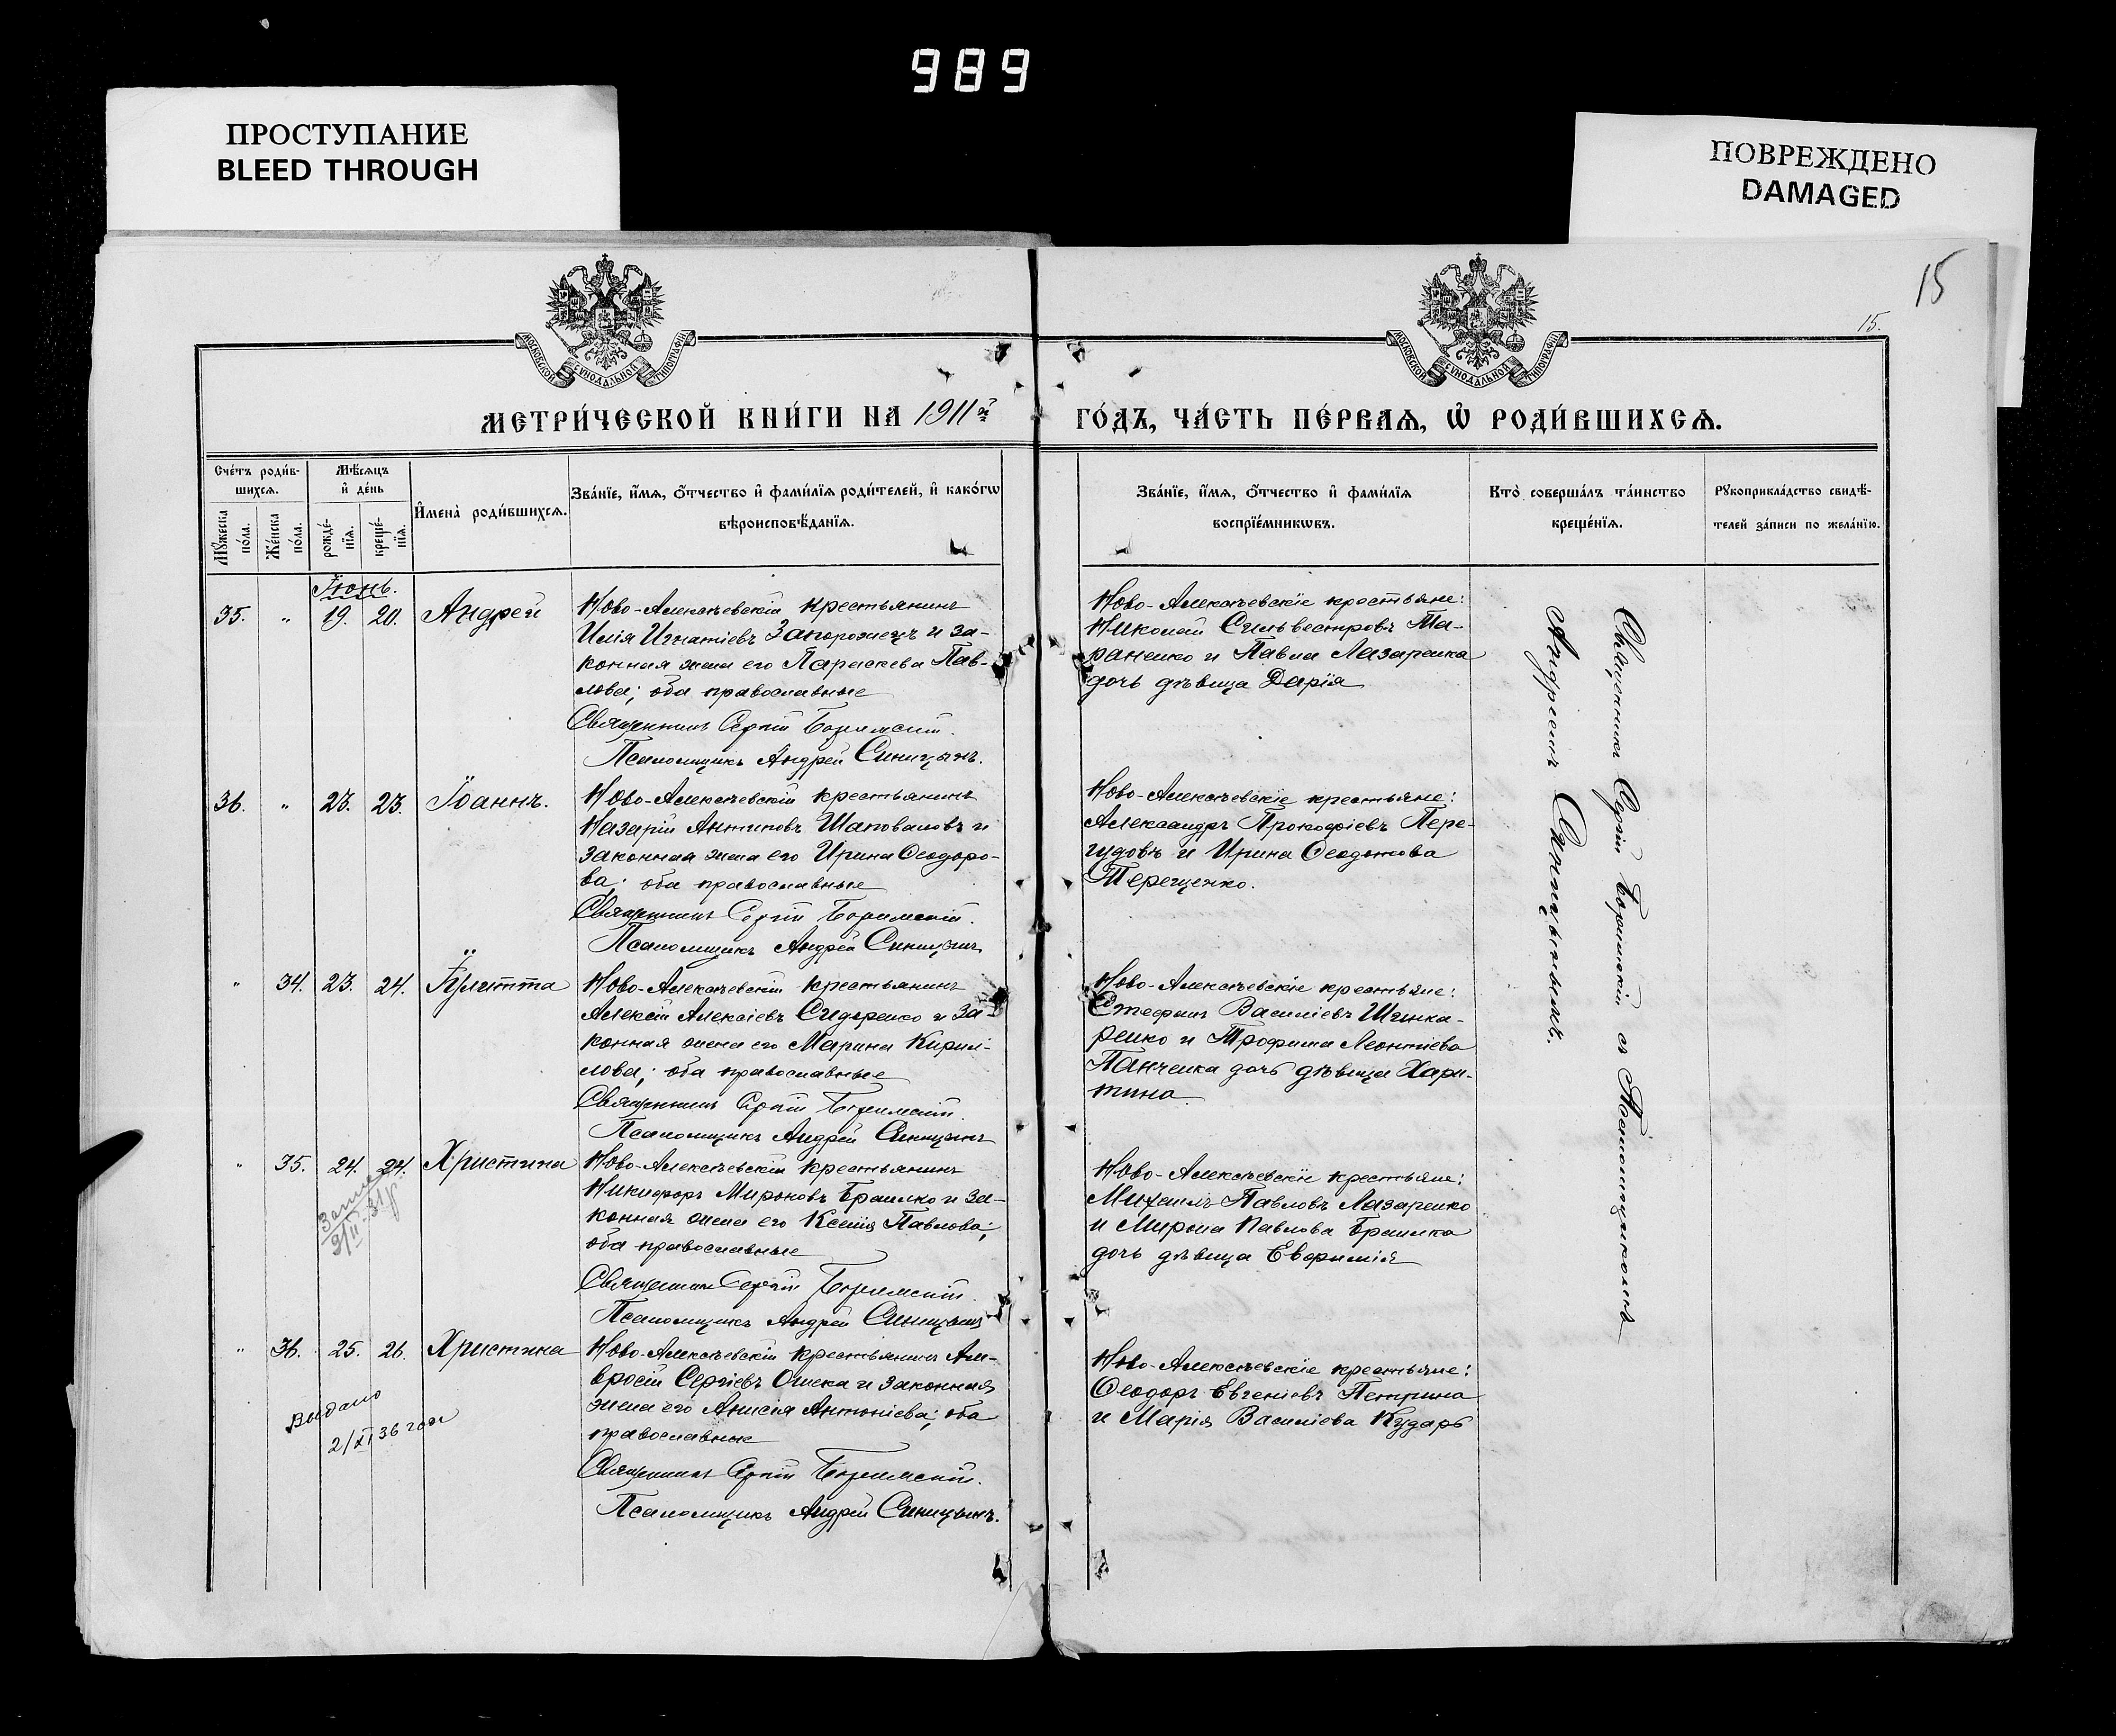 989
ПРОСТУПАНИЕ
BLEED THROUGH
ПОВРЕЖДЕНО
DAMAGED
15
15.
МОСКОВСКОЙ СѴНОДАЛЬНОЙ ТИПОГРАФІИ
МОСКОВСКОЙ СѴНОДАЛЬНОЙ ТИПОГРАФІИ
МЕТРИ́ЧЕСКОЙ КНИ́ГИ НА 1911й
ГО́ДЪ, ЧА́СТЬ ПЕ́РВАѦ, Ѽ РОДИ́ВШИХСѦ.
Сче́тъ роди́в-
шихсѧ.
Мѣ́сѧцъ
и҆ де́нь
Мꙋ́жеска по́ла.
Же́нска по́ла.
рожде́-
нїѧ.
креще́-
нїѧ.
И҆мена̀ роди́вшихсѧ.
Зва́нїе, и҆́мѧ, ѻ҆́тчество и҆ фами́лїѧ роди́телей, и҆ како́гѡ
вѣроисповѣ́данїѧ.
Зва́нїе, и҆́мѧ, ѻ҆́тчество и҆ фами́лїѧ
воспрїе́мникѡвъ.
Кто̀ соверша́лъ та́инство
креще́нїѧ.
Рꙋкоприкла́дство свидѣ́-
телей за́писи по жела́нїю.
Іюнь.
35. " 19. 20. Андрей
Ново-Алексѣевскій крестьянинъ
Илія Игнатіевъ Запорожецъ и за-
конная жена его Параскева Пав-
лова; оба православные
Священникъ Сергій
Псаломщикъ Андрей Синицынъ.
Ново-Алексѣевскіе крестьяне:
Николай Сильвестровъ Та-
раненко и Павла Лазаренка
дочь дѣвица Дарія
36. " 23. 23. Іоаннъ.
Ново-Алексѣевскій крестьянинъ
Назарій Антиповъ Шаповаловъ и
законная жена его Ирина Ѳеодоро-
ва; оба православные
Священникъ Сергій
Псаломщикъ Андрей Синицынъ
Ново-Алексѣевскіе крестьяне:
Александръ Прокофіевъ Пере-
гудовъ и Ирина Ѳеодотова
Терещенко.
" 34. 23. 24. Іулитта
Ново-Алексѣевскій крестьянинъ
Алексій Алексіевъ Сидоренко и за-
конная жена его Марина Кирил-
лова; оба православные
Священникъ Сергій
Псаломщикъ Андрей Синицынъ
Ново-Алексѣевскіе крестьяне:
Стефанъ Василіевъ Шинка-
ренко и Трофима Леонтіева
Панченка дочь дѣвица Хари-
тина
" 35. 24. 24. Христина
9/II-31 г.
Ново-Алексѣевскій крестьянинъ
Никифоръ Мироновъ Брашко и за-
конная жена его Ксенія Павлова;
оба православные
Священникъ Сергій
Псаломщикъ Андрей Синицынъ
Ново-Алексѣевскіе крестьяне:
Михаилъ Павловъ Лазаренко
и Мирона Павлова Брашка
дочь дѣвица Евфимія
" 36. 25. 26. Христина
Выдано
2/XI 36 года
Ново-Алексѣевскій крестьянинъ Ам-
вросій Сергіевъ и законная
жена его Анисія Антоніева; оба
православные
Священникъ Сергій
Псаломщикъ Андрей Синицынъ.
Ново-Алексѣевскіе крестьяне:
Ѳеодоръ Евгеніевъ Петрина
и Марія Василіева Кударь
Священникъ Сергій съ Псаломщикомъ
Андреемъ Синицынымъ.